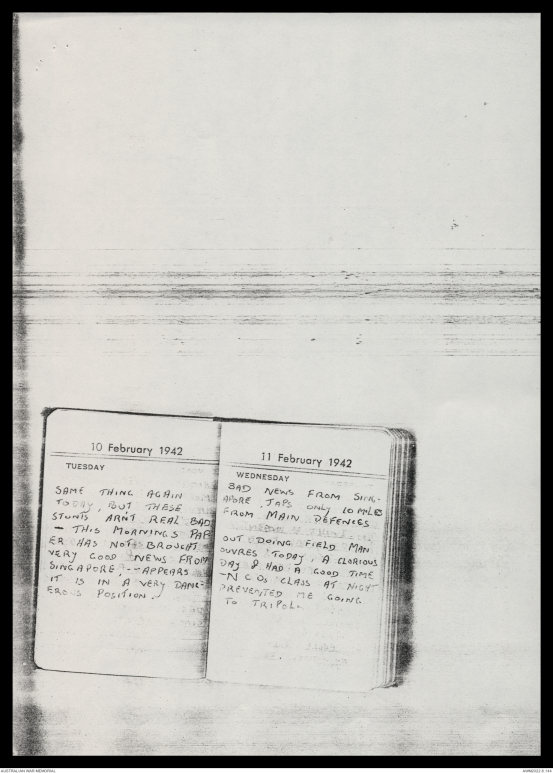 10 February 1942
TUESDAY
SAME THING AGAIN
TODAY, BUT THESE
STUNTS ARN'T REAL BAD
- THIS MORNINGS PAP
ER HAS NOT BROUGHT
VERY GOOD NEWS FROM
SINGAPORE, -- APPEARS
IT IS IN A VERY DANG-
EROUS POSITION.
11 February 1942
WEDNESDAY
BAD NEWS FROM SING-
APORE JAPS ONLY 10 MILES
FROM MAIN DEFENCES
OUT DOING FIELD MAN
OUVRES TODAY, A GLORIOUS
DAY & HAD A GOOD TIME
- N C Os CLASS AT NIGHT
PREVENTED ME GOING
TO TRIPOLI.
AUSTRALIAN WAR MEMORIAL